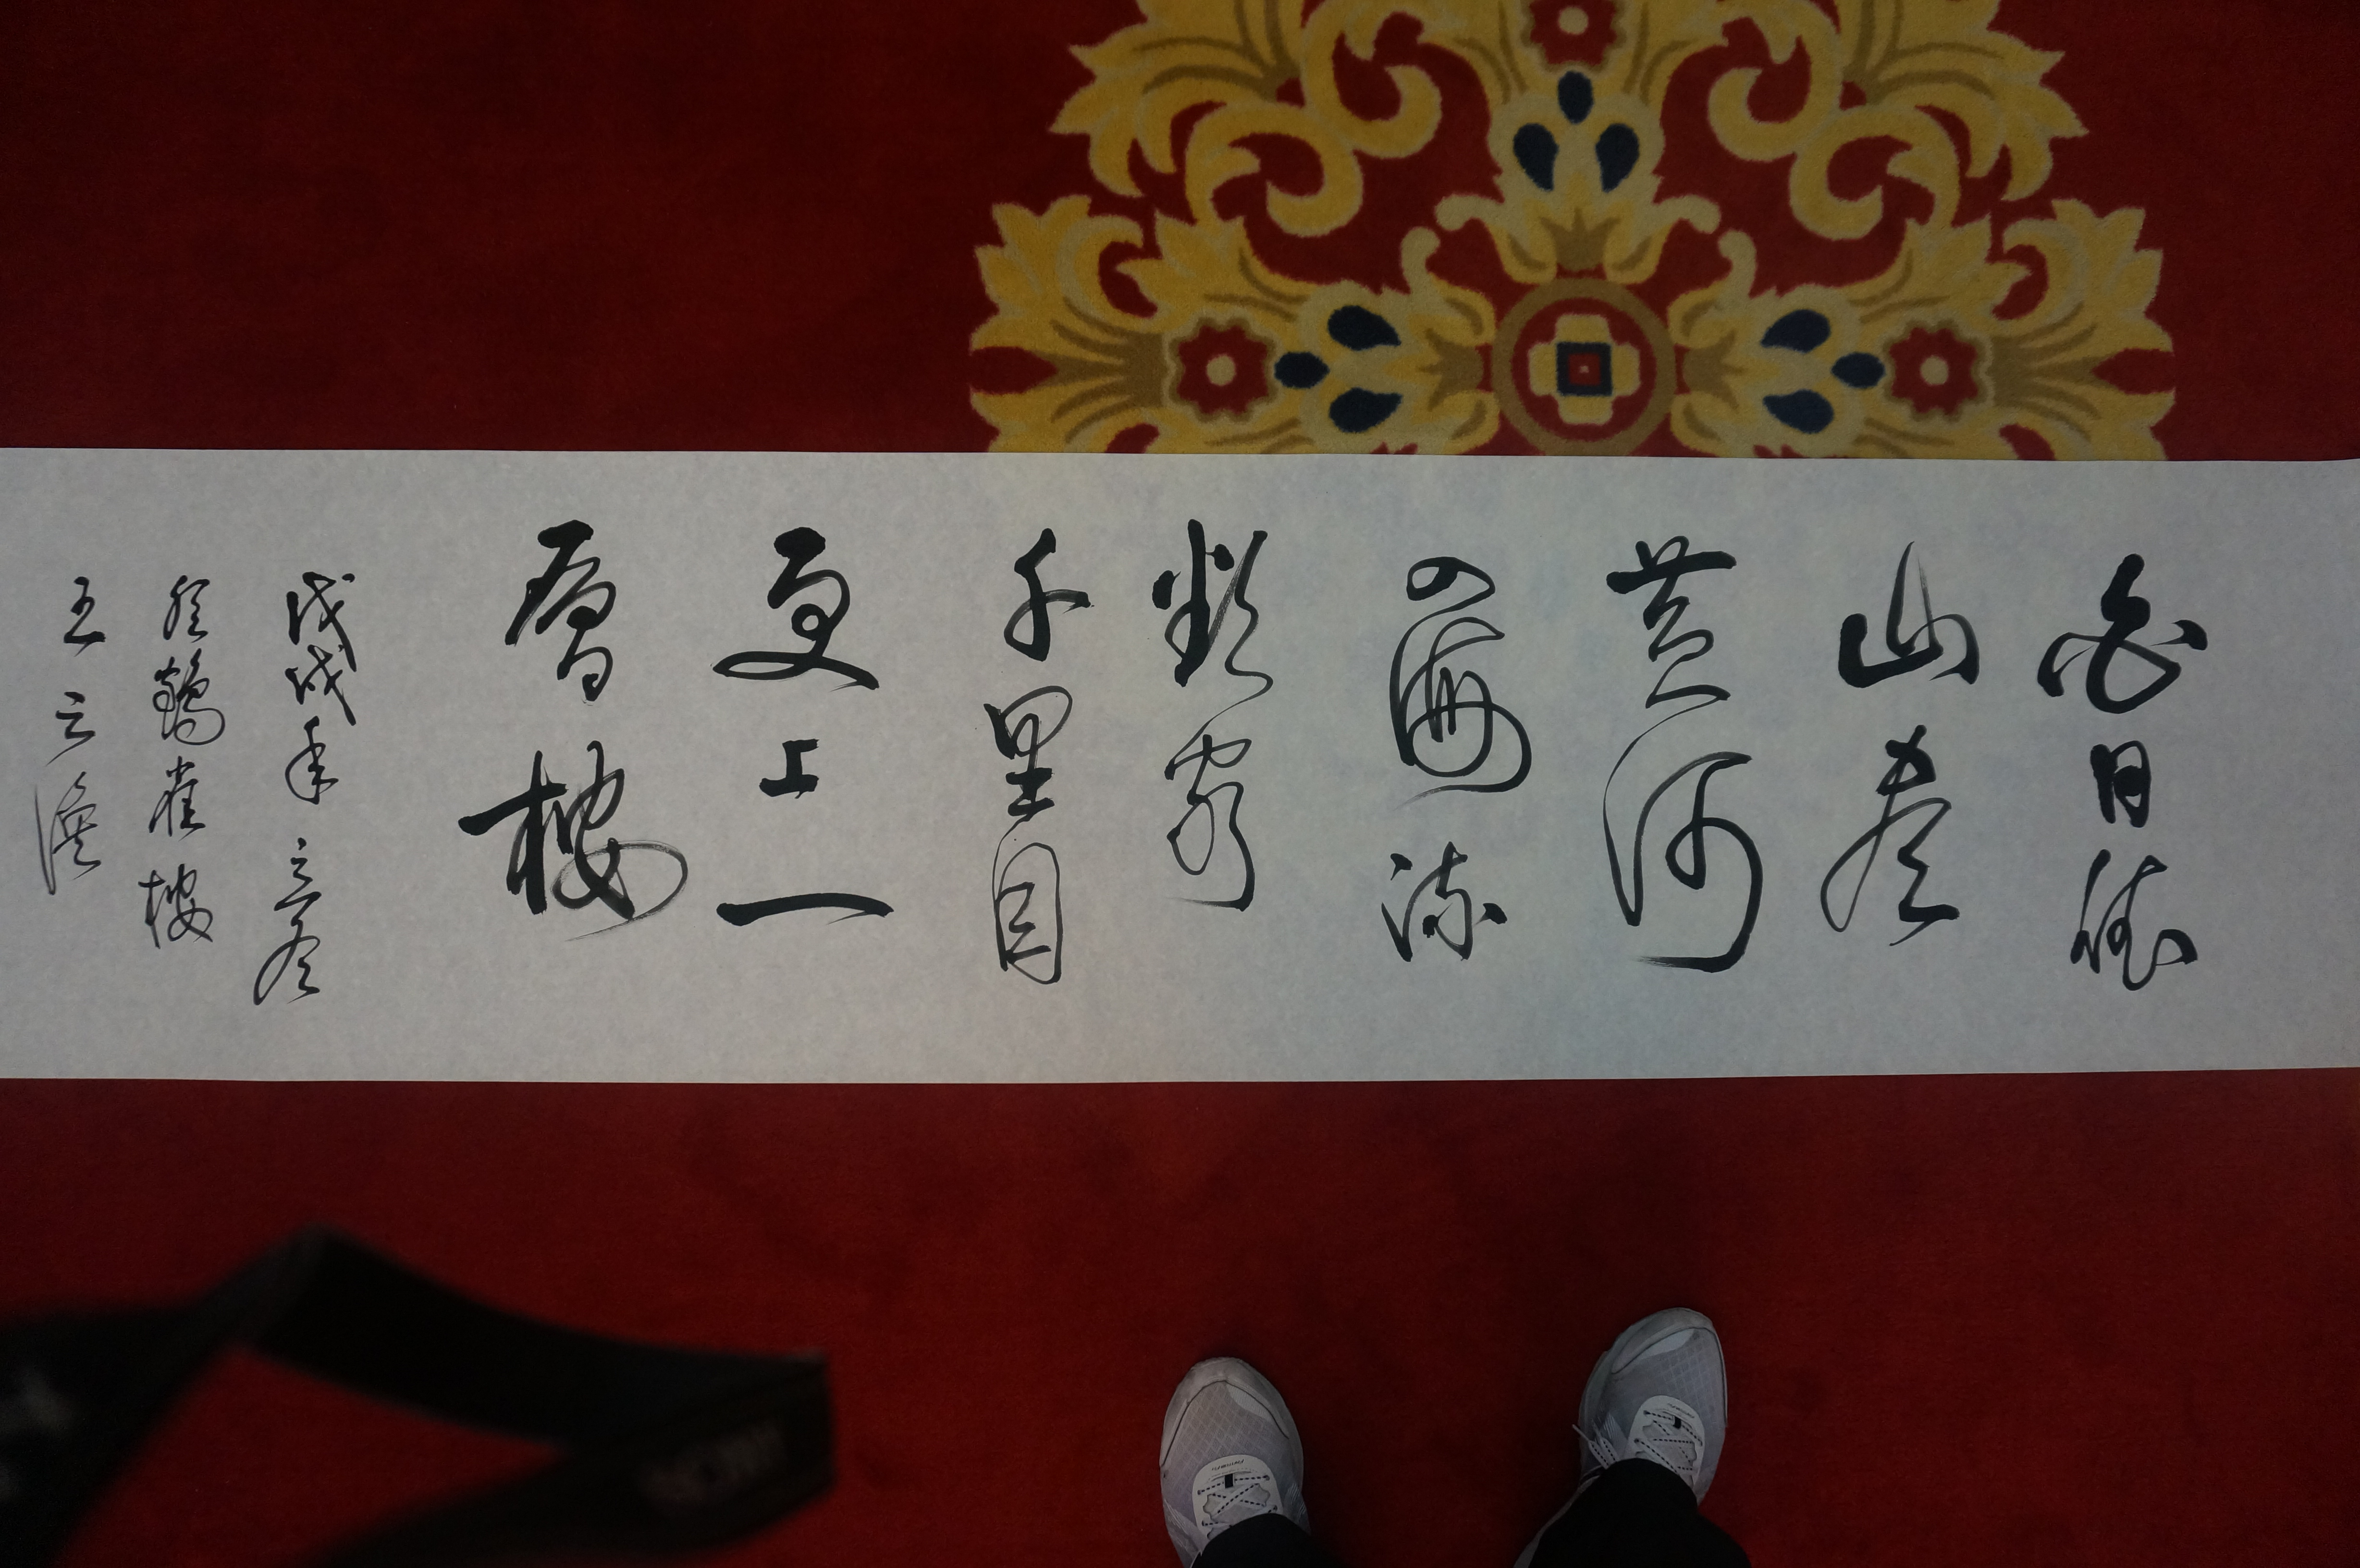 白日依
山尽
黄河
入海流
欲窮
千里目
更上一
層楼
戊戌年立冬
登鸛雀楼
王之涣